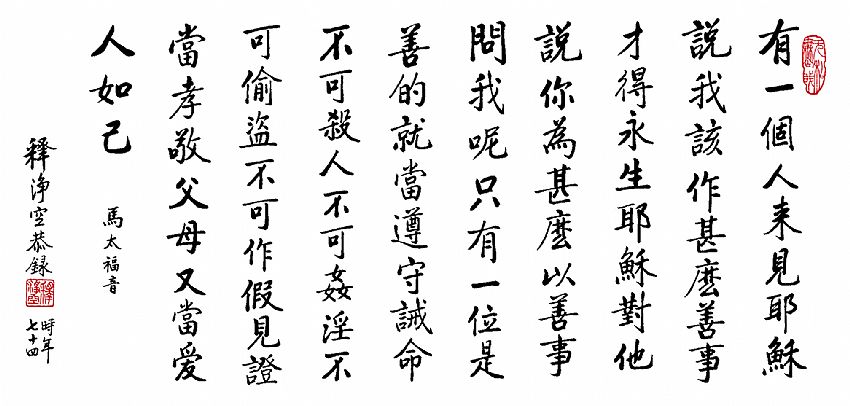 有一個人来見耶穌
說我該作甚麼善事
才得永生耶穌對他
說你為甚麼以善事
問我呢只有一位是
善的就當遵守誡命
不可殺人不可姦淫不
可偷盜不可作假見證
當孝敬父母又當爱
人如己
馬太福音
釋淨空恭録
時年
七十四